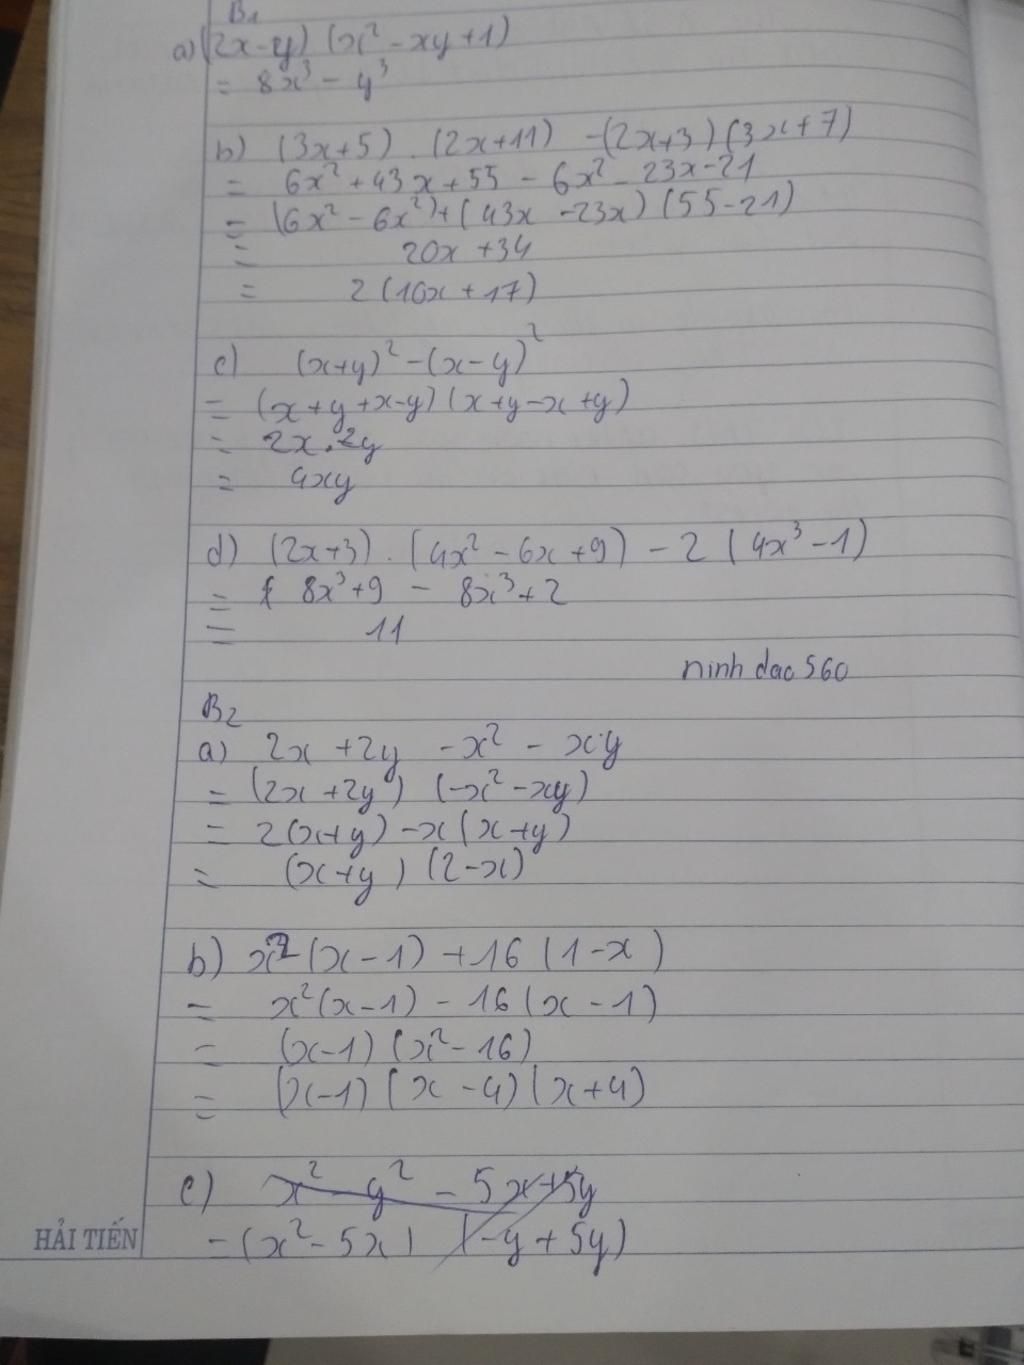 B1
a) (2x-y) (x² - xy + 1)
= 8x³ - y³
b) (3x+5) . (2x+11) - (2x+3) (3x+7)
= 6x² + 43x + 55 - 6x² - 23x - 21
= (6x² - 6x²) + (43x - 23x) (55-21)
= 20x + 34
= 2 (10x + 17)
c) (x+y)² - (x-y)²
= (x+y+x-y) (x+y-x+y)
= 2x.2y
= 4xy
d) (2x+3) . (4x² - 6x + 9) - 2 (4x³ - 1)
= 8x³ + 9 - 8x³ + 2
= 11
ninh dac 560
B2
a) 2x + 2y - x² - xy
= (2x + 2y) (-x² - xy)
= 2(x+y) - x(x+y)
= (x+y) (2-x)
b) x² (x-1) + 16 (1-x)
= x²(x-1) - 16(x-1)
= (x-1) (x² - 16)
= (x-1) (x-4) (x+4)
c) x² - y² - 5x + 5y
= (x² - 5x) (-y + 5y)
HẢI TIẾN